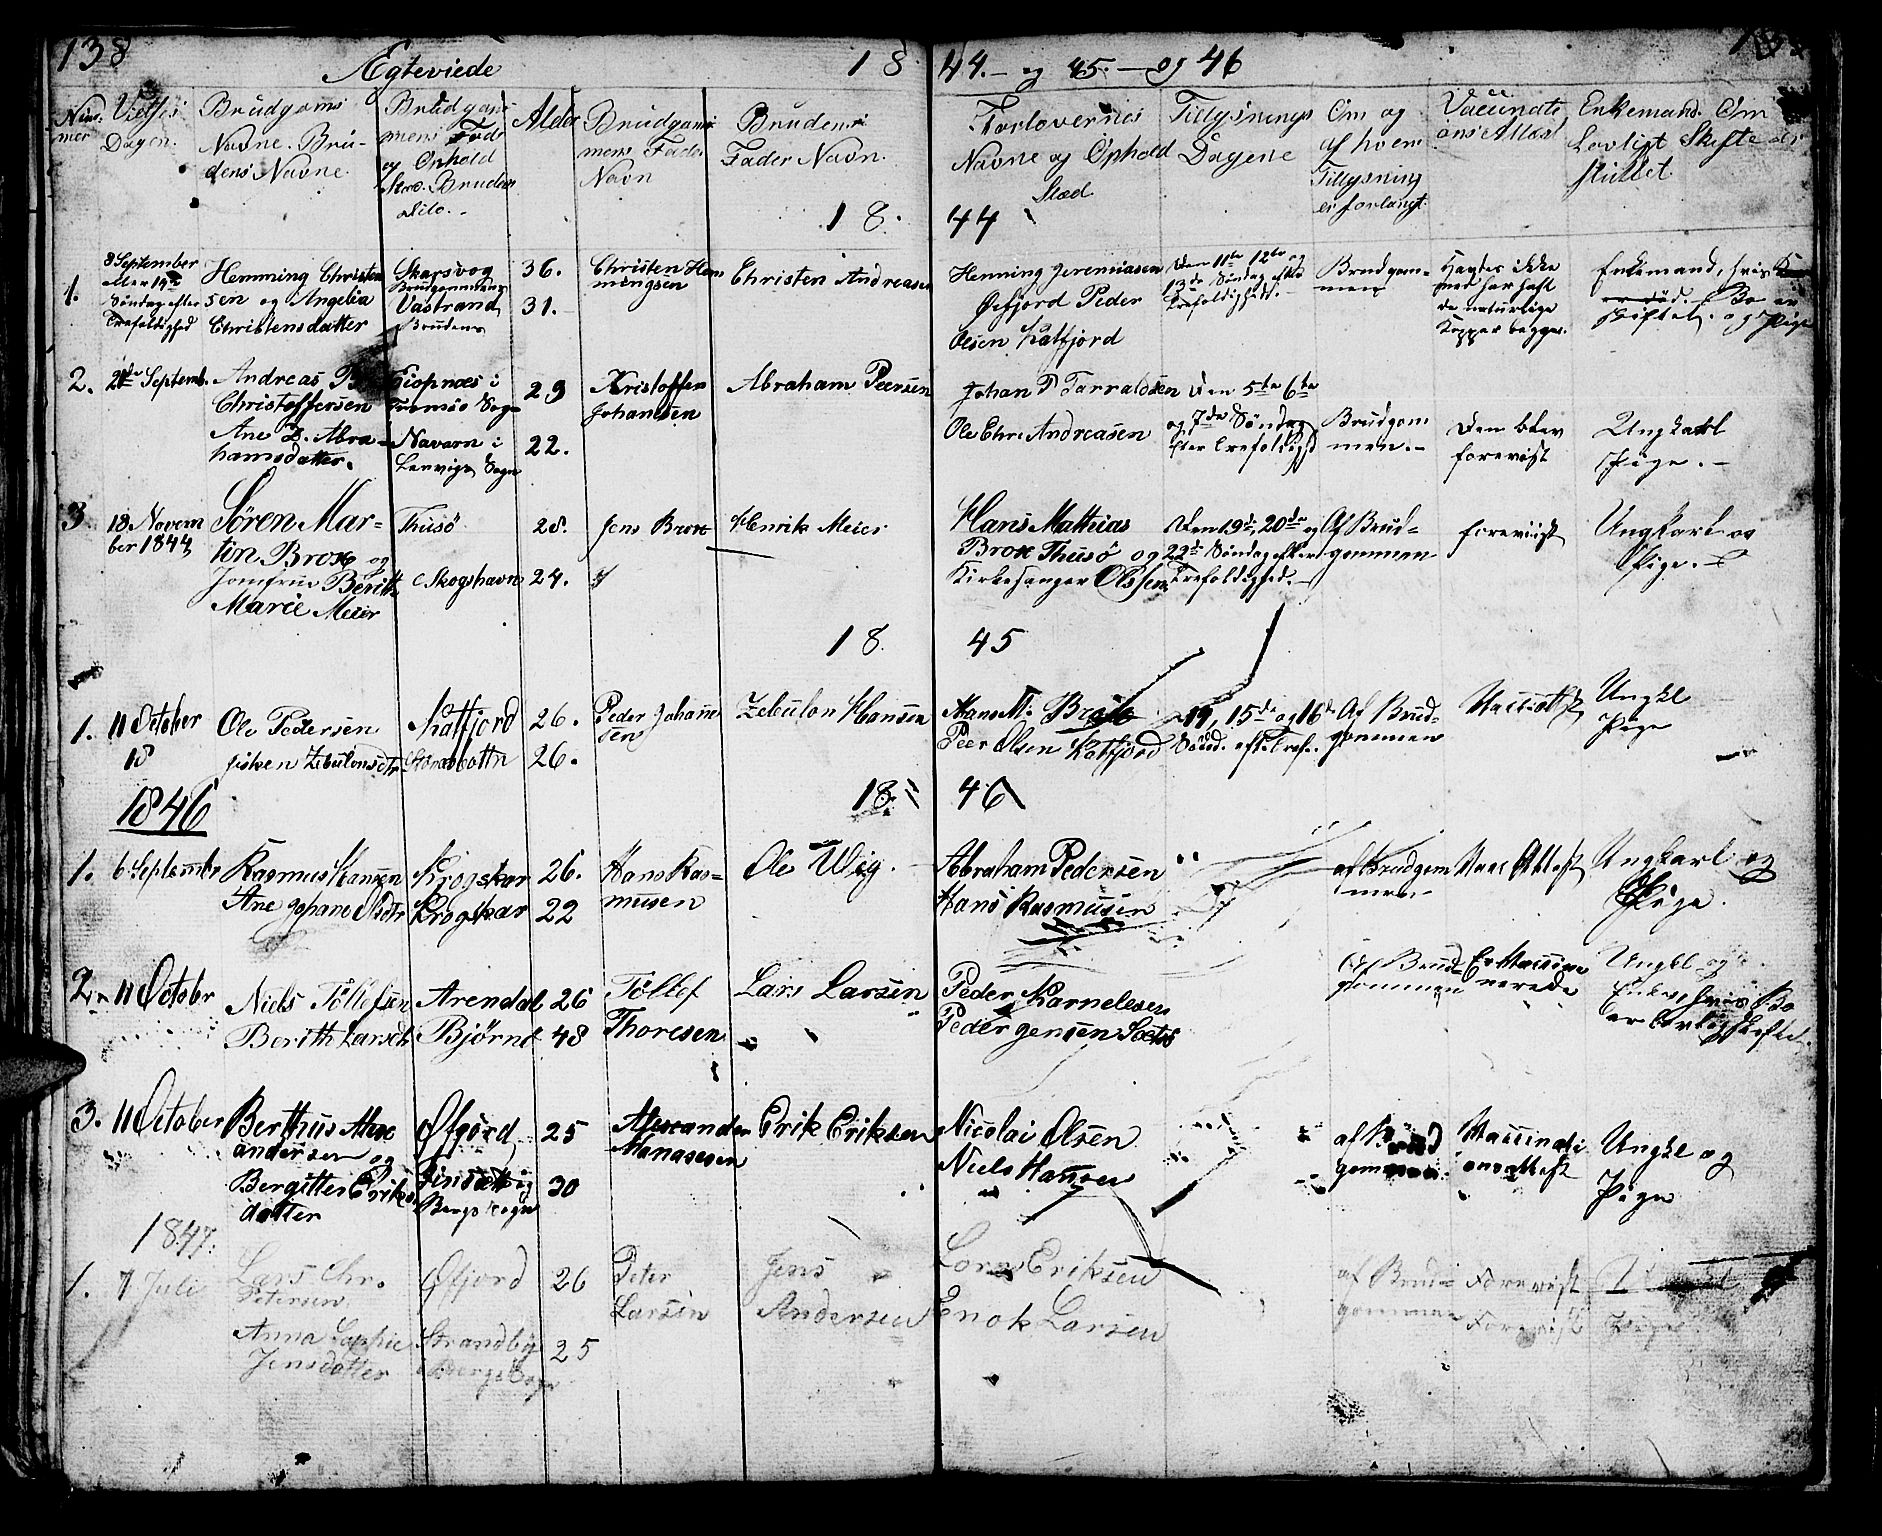 138
Ægteviede 18 44. - og 45. - og 46
Num-
mer
Vielses
Dagen.
Brudgoms
Navne. Bru-
dens Navne
Brudgom-
mens Føde
og Ophold
Sted. Brudens
dito. -
Alder
Brudgom-
mens Fader
Navn
Brudens
Fader Navn.
Forlovernes
Navne og Ophold
Sted
Tillysnings
Dagene
Om og
af hvem
Tillysning
er forlangt.
Vaccinati
ons Attest
Enkemand. Om
Lovligt Skifte er
stillet
18. 44
1.
8 September
eller 14de
Søndag efter
Trefoldighed
Hemming Christen
sen og Angelia
Christensdatter
Skarsvog
Brudgommens
Vastrand
Brudens
36.
31.
Christen Hem
mingsen
Christen Andreasen
Henning Jeremiasen
Øefjord Peder
Olsen Katfjord
Den 11te 12te og
13de Søndag efter
Trefoldighed. -
Brudgom-
men
Havdes ikke
med har haft
de naturlige
Kopper begge.
Enkemand, hvis
Bo er
skiftet. og Pige
2.
Septemb.
Andreas
Christoffersen
Ane Abra-
hamsdatter.
Tromsø Sogn
Navarn i
Lenvigs Sogn
29
22.
Kristoffer
Johansen
Abraham Peersen
Johan P Tarraldsen
Ole Chr. Andreasen
Den 5te 6te
og 7de Søndag
efter Trefoldighd
Brudgom
men. -
Den blev
foreviist
Ungkarl
Pige. -
3.
18 Novem
ber 1844
Søren Mar-
tin Brox og
Jomfrue Berith
Marie Meier
Thusø
Skogshavn
28.
24.
Jens Brox
Henrik Meier
Hans Mathias
Brox Thusø og
Kirkesanger Olssen
Den 19de, 20de og
22de Søndag efter
Trefoldighed. -
Af Brud-
gommen
foreviist
Ungkarl og
Pige. -
18. 45
1.
11 October
18
Ole Pedersen
Zebulonsdtr
Katfjord
26.
26.
Peder Johann
sen
Zebulon Hansen
Hans M: Brox
Peer Olsen Katfjord
14, 15de og 16de
Sønd. eft. Tref.
Af Brud-
gommen
Ungkl
Pige
1846 18. 46
1.
6 September
Rasmus Hansen
Ane Johane Olsdtr
Krogskar
Krogskar
26.
22
Hans Ras-
musen
Ole Wig.
Abraham Pedersen
Hans Rasmusen
af Brudgom
men.
Vacc Attest
Ungkarl og
Pige.
2.
11 October
Niels Tollefsen
Berith Larsdt
Arendal
Bjørnø
26
48
Tollef
Thoresen
Lars Larsen
Peder Karnelesen
Peder Jensen
Af Brud
gommen
Er Vaccine
rerede
Ungkl og
Enke, hvis Bo
er lovlig skiftet.
3.
11 October
Berthus Alex
andersen og
Bergitte Eriks
datter
Øfjord
Bergs Sogn
25
30
Alexander
Manasesen
Erik Eriksen
Nicolai Olsen
Niels Hansen
af Brud
gommen
Vaccinati
ons attest
Ungkl og
Pige
1847.
1.
7 Juli
Lars Chr.
Petersen
Anna Sophie
Jensdatter
Øfjord
Strandby
Bergs Sogn
26
25
Peter
Larsen
Jens
Andersen
Lars Eriksen
Enok Larsen
af Brud-
gommen
Forevist
Forevist
Pige